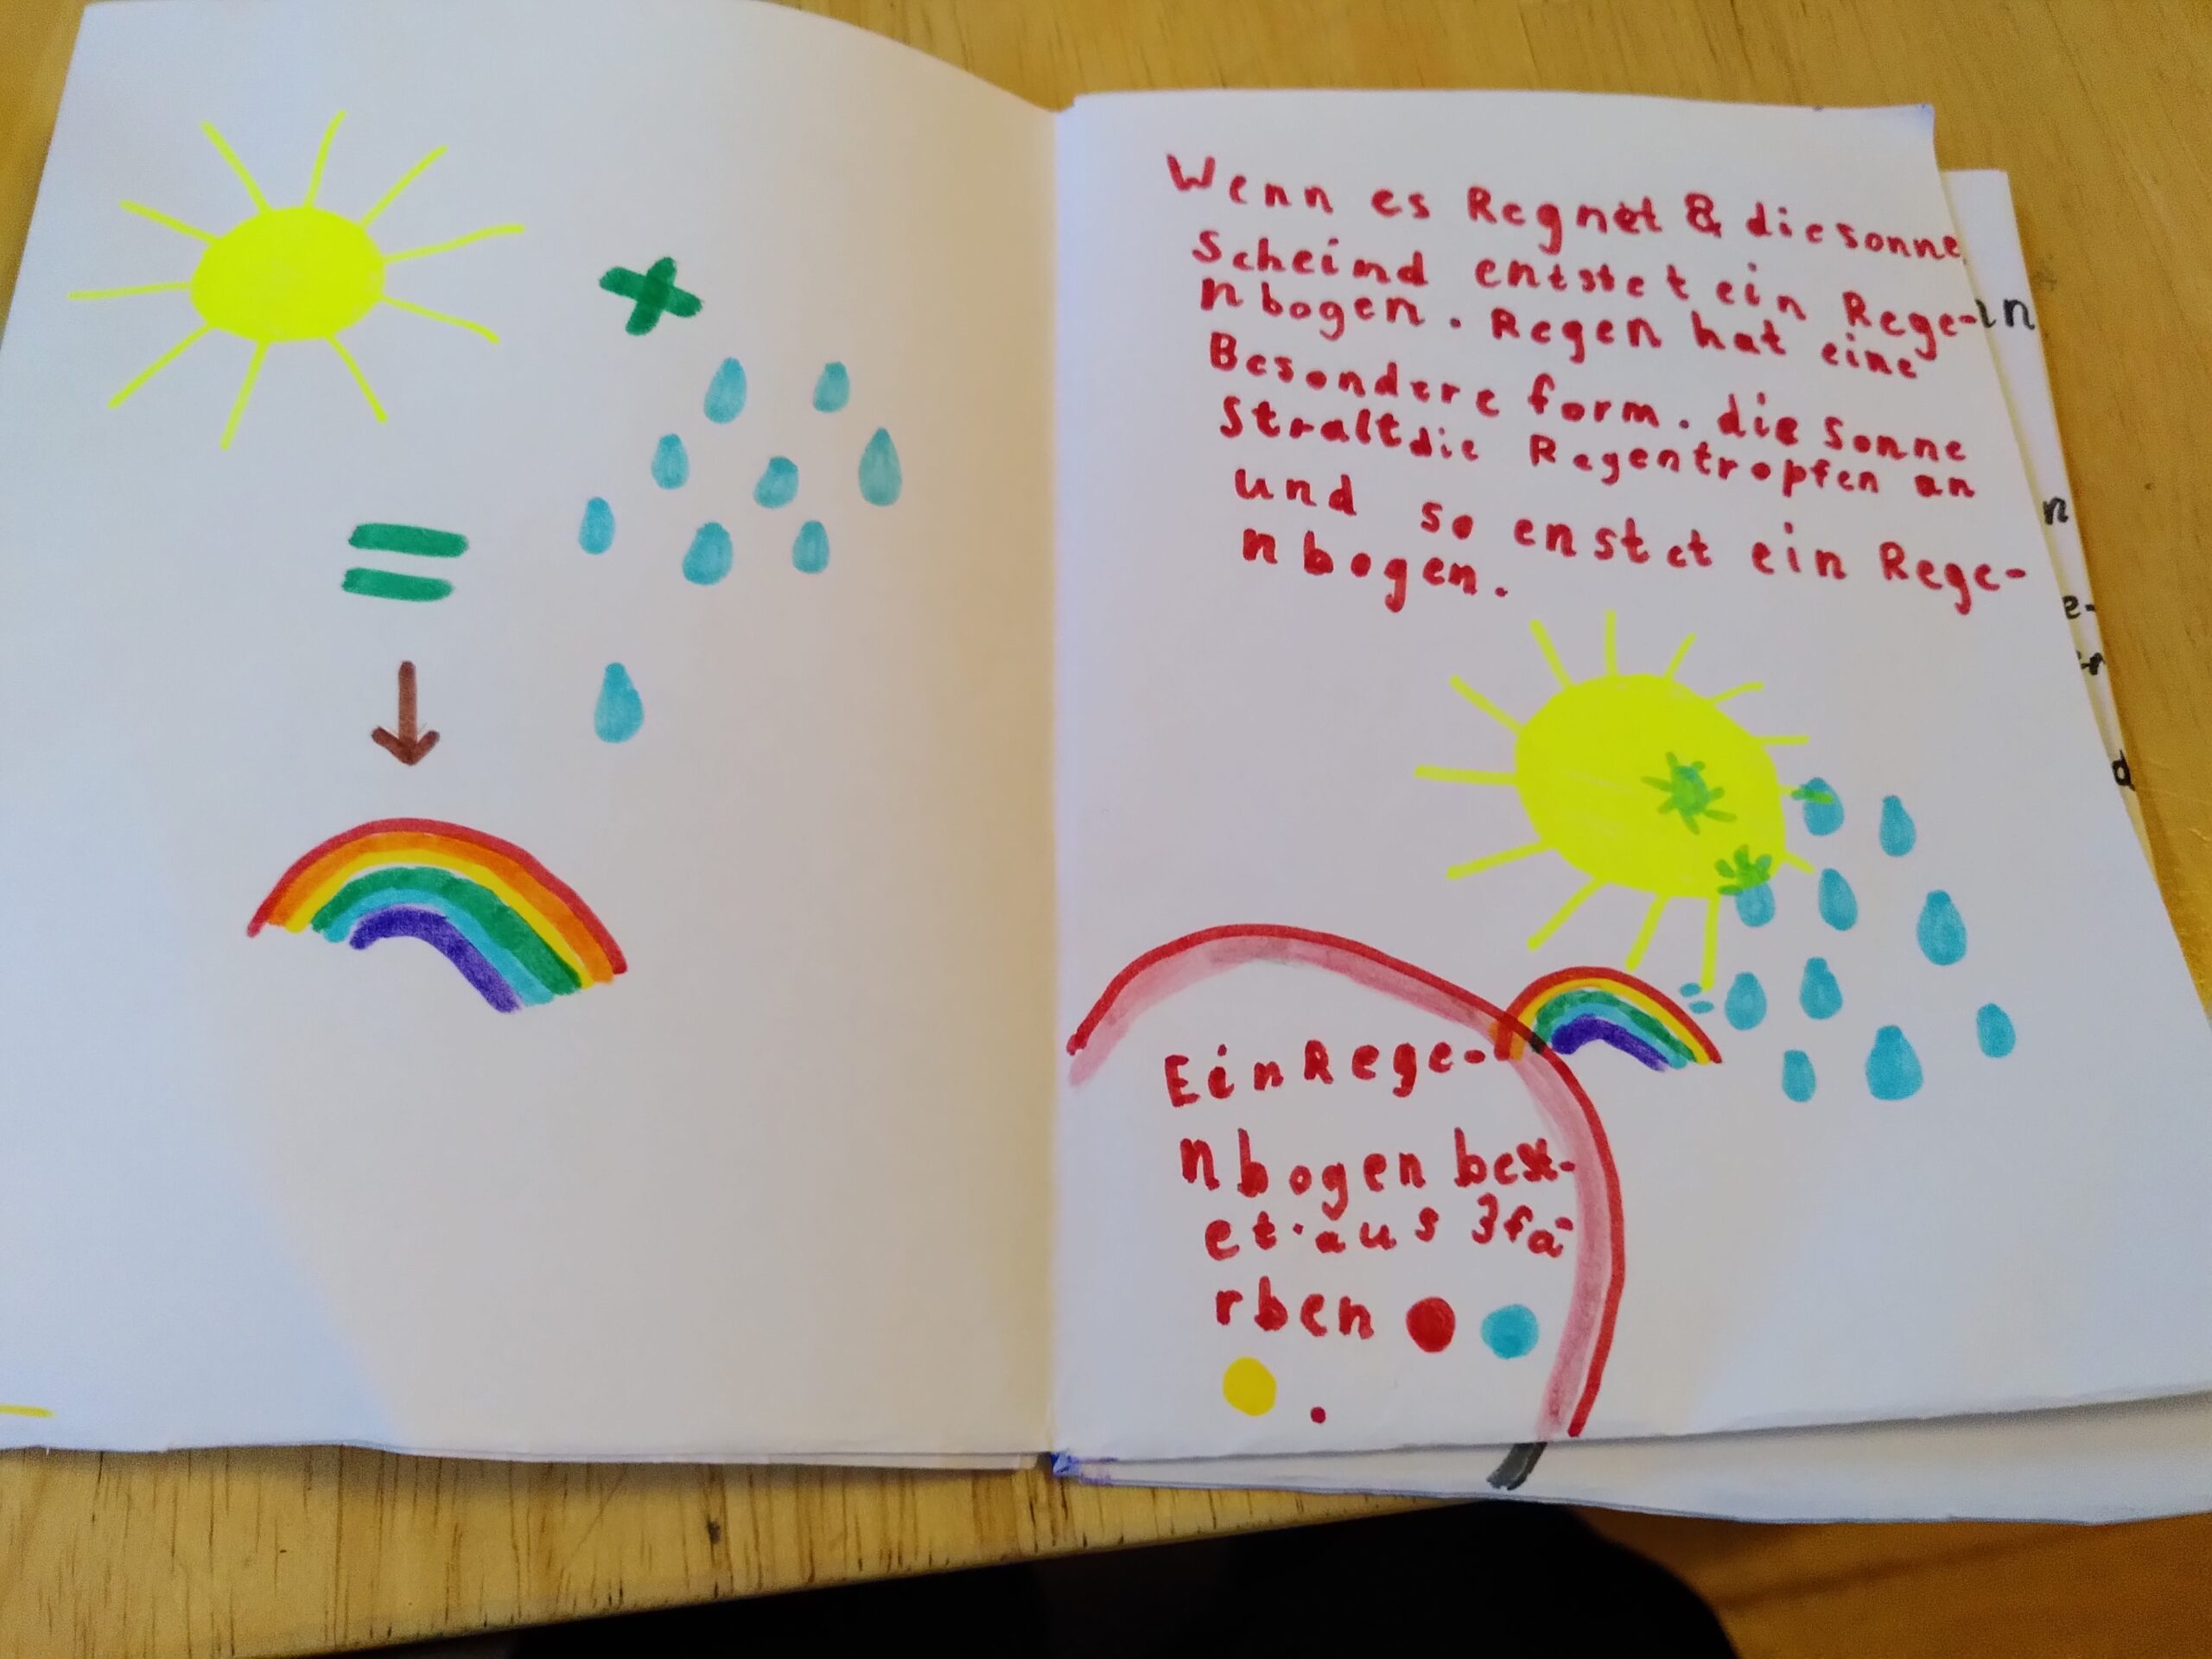 Wenn es Regnet & die sonne
Scheind entstet ein Rege-
nbogen. Regen hat eine
Besondere form. die Sonne
Stralt die Regentropfen an
und so enstet ein Rege-
nbogen.
Ein Rege-
nbogen best-
et aus 3 fa-
rben
in
n
e-
d